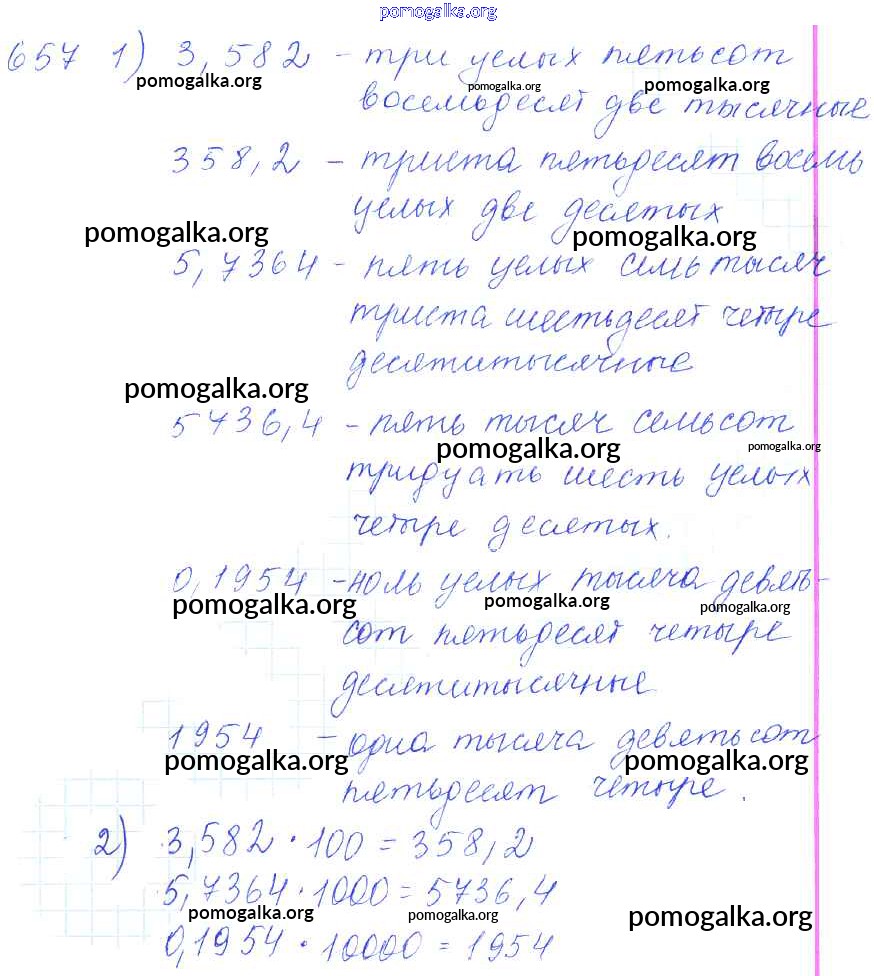 pomogalka.org
657 1) 3,582 - три целых пятьсот
pomogalka.org pomogalka.org pomogalka.org
восемьдесят две тысячные
358,2 - триста пятьдесят восемь
целых две десятых
pomogalka.org pomogalka.org
5,7364 - пять целых семь тысяч
триста шестьдесят четыре
десятитысячные
pomogalka.org
5736,4 - пять тысяч семьсот
pomogalka.org pomogalka.org
тридцать шесть целых
четыре десятых.
pomogalka.org
0,1954 - ноль целых тысяча девять-
pomogalka.org pomogalka.org pomogalka.org
сот пятьдесят четыре
десятитысячные
1954 - одна тысяча девятьсот
pomogalka.org pomogalka.org
пятьдесят четыре.
2) 3,582 · 100 = 358,2
5,7364 · 1000 = 5736,4
pomogalka.org pomogalka.org pomogalka.org
0,1954 · 10000 = 1954